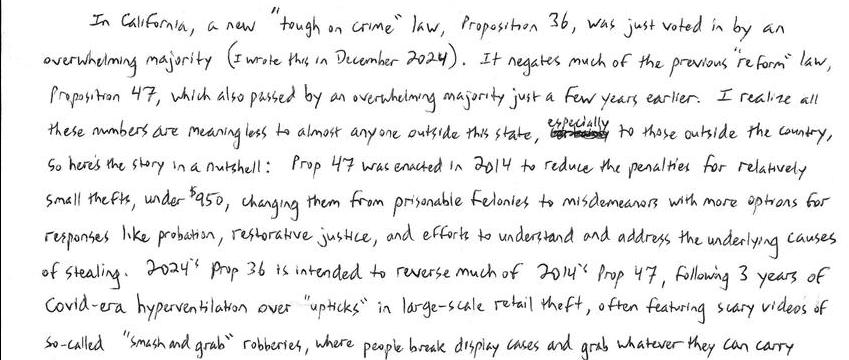 In California, a new "tough on crime" law, Proposition 36, was just voted in by an
overwhelming majority (I wrote this in December 2024). It negates much of the previous "reform" law,
Proposition 47, which also passed by an overwhelming majority just a few years earlier. I realize all
these numbers are meaningless to almost anyone outside this state, especially to those outside the country,
so here's the story in a nutshell: Prop 47 was enacted in 2014 to reduce the penalties for relatively
small thefts, under $950, changing them from prisonable felonies to misdemeanors with more options for
responses like probation, restorative justice, and efforts to understand and address the underlying causes
of stealing. 2024's Prop 36 is intended to reverse much of 2014's Prop 47, following 3 years of
Covid-era hyperventilation over "upticks" in large-scale retail theft, often featuring scary videos of
so-called "smash and grab" robberies, where people break display cases and grab whatever they can carry